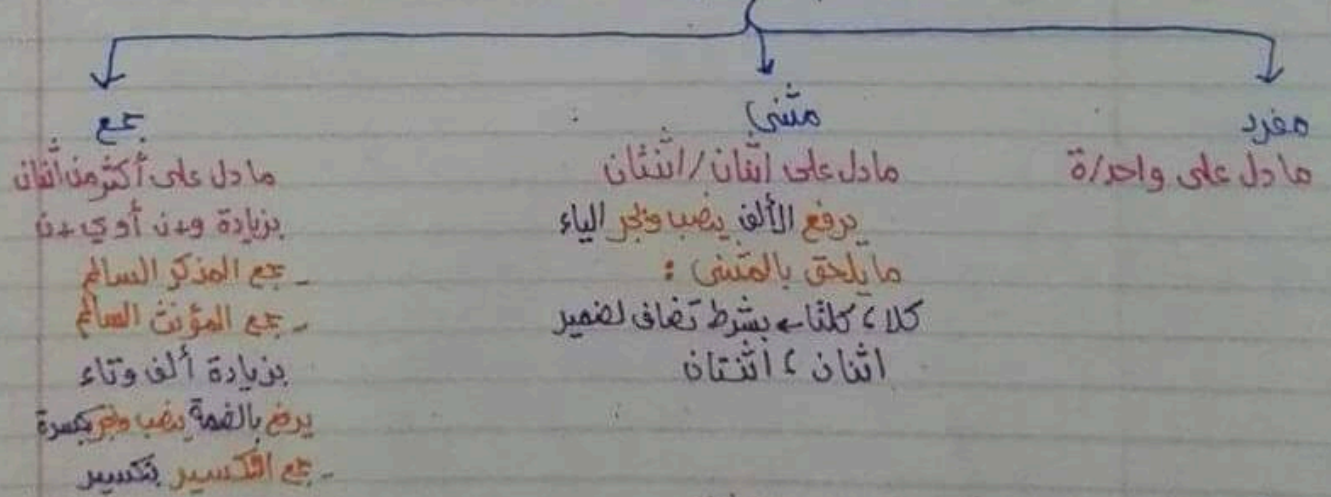 مفرد
ما دل على واحد/ة
مثنى
ما دل على اثنان/اثنتان
يرفع الألف ينصب ويجر الياء
ما يلحق بالمثنى :
كلا، كلتا بشرط تضاف لضمير
اثنان، اثنتان
جمع
ما دل على أكثر من اثنان
بزيادة و+ن أو ي+ن
- جمع المذكر السالم
- جمع المؤنث السالم
بزيادة ألف وتاء
يرفع بالضمة ينصب ويجر بكسرة
- جمع التكسير بتكسير